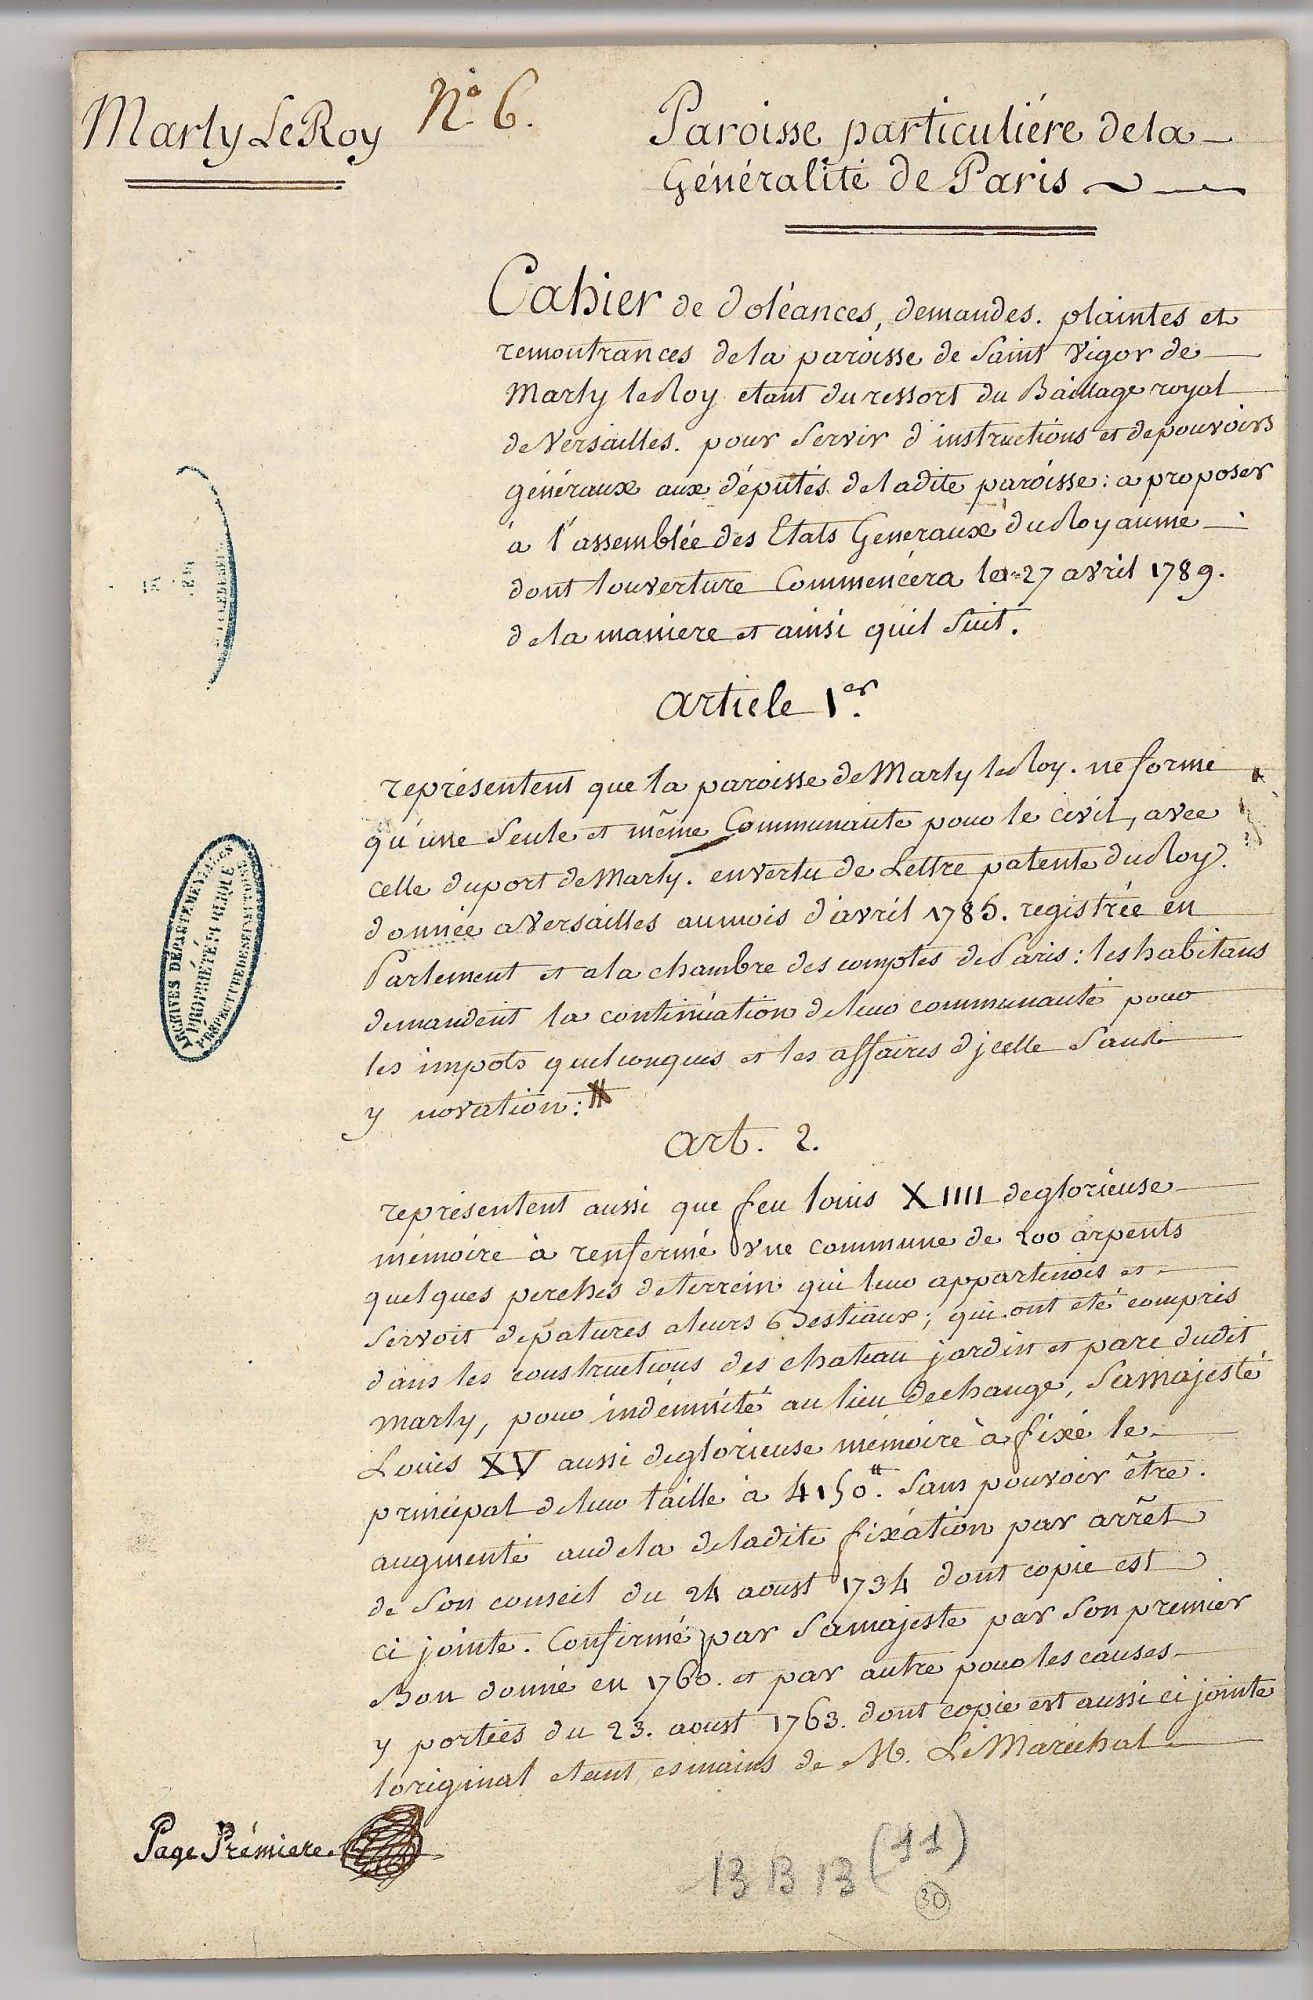 Marly Le Roy
N.º 6.
Paroisse particuliére de la
Généralité de Paris
Cahier de doléances, demandes. plaintes et
remontrances de la paroisse de Saint Vigor de
Marly le Roy etant du ressort du Bailliage royal
de Versailles. pour servir d'instructions et de pouvoirs
généraux aux députés de ladite paroisse: a proposer
à l'assemblée des Etats Generaux du Royaume
dont louverture Commencéra le 27 avril 1789.
de la maniere et ainsi quil suit.
article 1.er
représentent que la paroisse de Marly le Roy. ne forme
qu'une seule et même Communauté pour le civil, avec
celle du port de Marly. en vertu de Lettre patente du Roy.
donnée a Versailles au mois d'avril 1785. registrée en
Parlement et a la chambre des comptes de Paris: les habitans
demandent la continuation de leur communauté pour
les impots quelconques et les affaires d'jcelle sans
y novation:
art. 2.
représentent aussi que feu louis XIIII de glorieuse
mémoire à renfermé vne commune de 200 arpents
quelques perches de terrein qui leur appartenois et
servoit de patures a leurs Bestiaux; qui ont été compris
dans les constructions des chateau jardin et parc dudit
marly, pour indémnité au lieu dechange, sa majesté
Louis XV aussi de glorieuse mémoire à fixé le
principal de leur taille à 4150.tt sans pouvoir être
augmenté audela de ladite fixation par arrêt
de son conseil du 24 aoust 1734 dont copie est
ci jointe. Confirmé par sa majeste par son premier
Bon donné en 1760. et par autre pour les causes
y portées du 23. aoust 1763. dont copie est aussi ci jointe
loriginal etant es mains de M. Le Maréchal
Page Prémiere.
ARCHIVES DÉPARTEMENTALES
PROPRIÉTÉ PUBLIQUE
PRÉFECTURE DE SEINE ET OISE
13 B 13 (11)
30